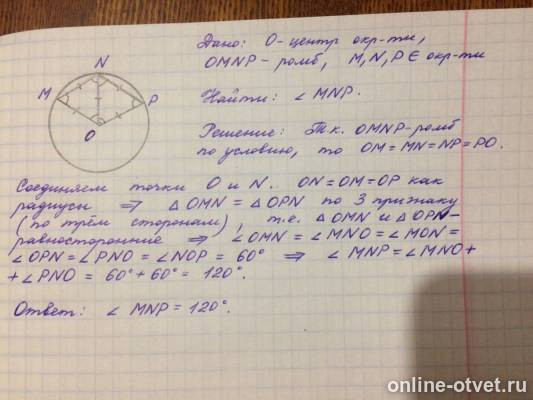 Дано: О-центр окр-ти,
OMNP-ромб, M,N,P∈ окр-ти
Найти: ∠MNP.
Решение: Т.к. OMNP-ромб
по условию, то OM=MN=NP=PO.
N
M
P
O
Соединяем точки О и N. ON=OM=OP как
радиусы ⇒ △OMN = △OPN по 3 признаку
(по трём сторонам), т.е. △OMN и △OPN-
равносторонние ⇒ ∠OMN = ∠MNO = ∠MON =
∠OPN = ∠PNO = ∠NOP = 60° ⇒ ∠MNP = ∠MNO +
+ ∠PNO = 60° + 60° = 120°.
Ответ: ∠MNP = 120°.
online-otvet.ru